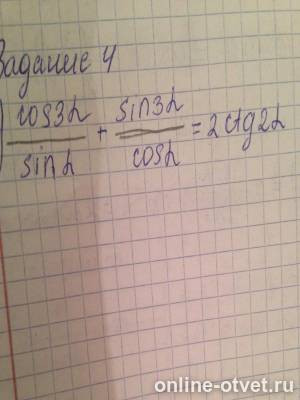 Задание 4
) cos3α/sinα + sin3α/cosα = 2ctg2α
online-otvet.ru